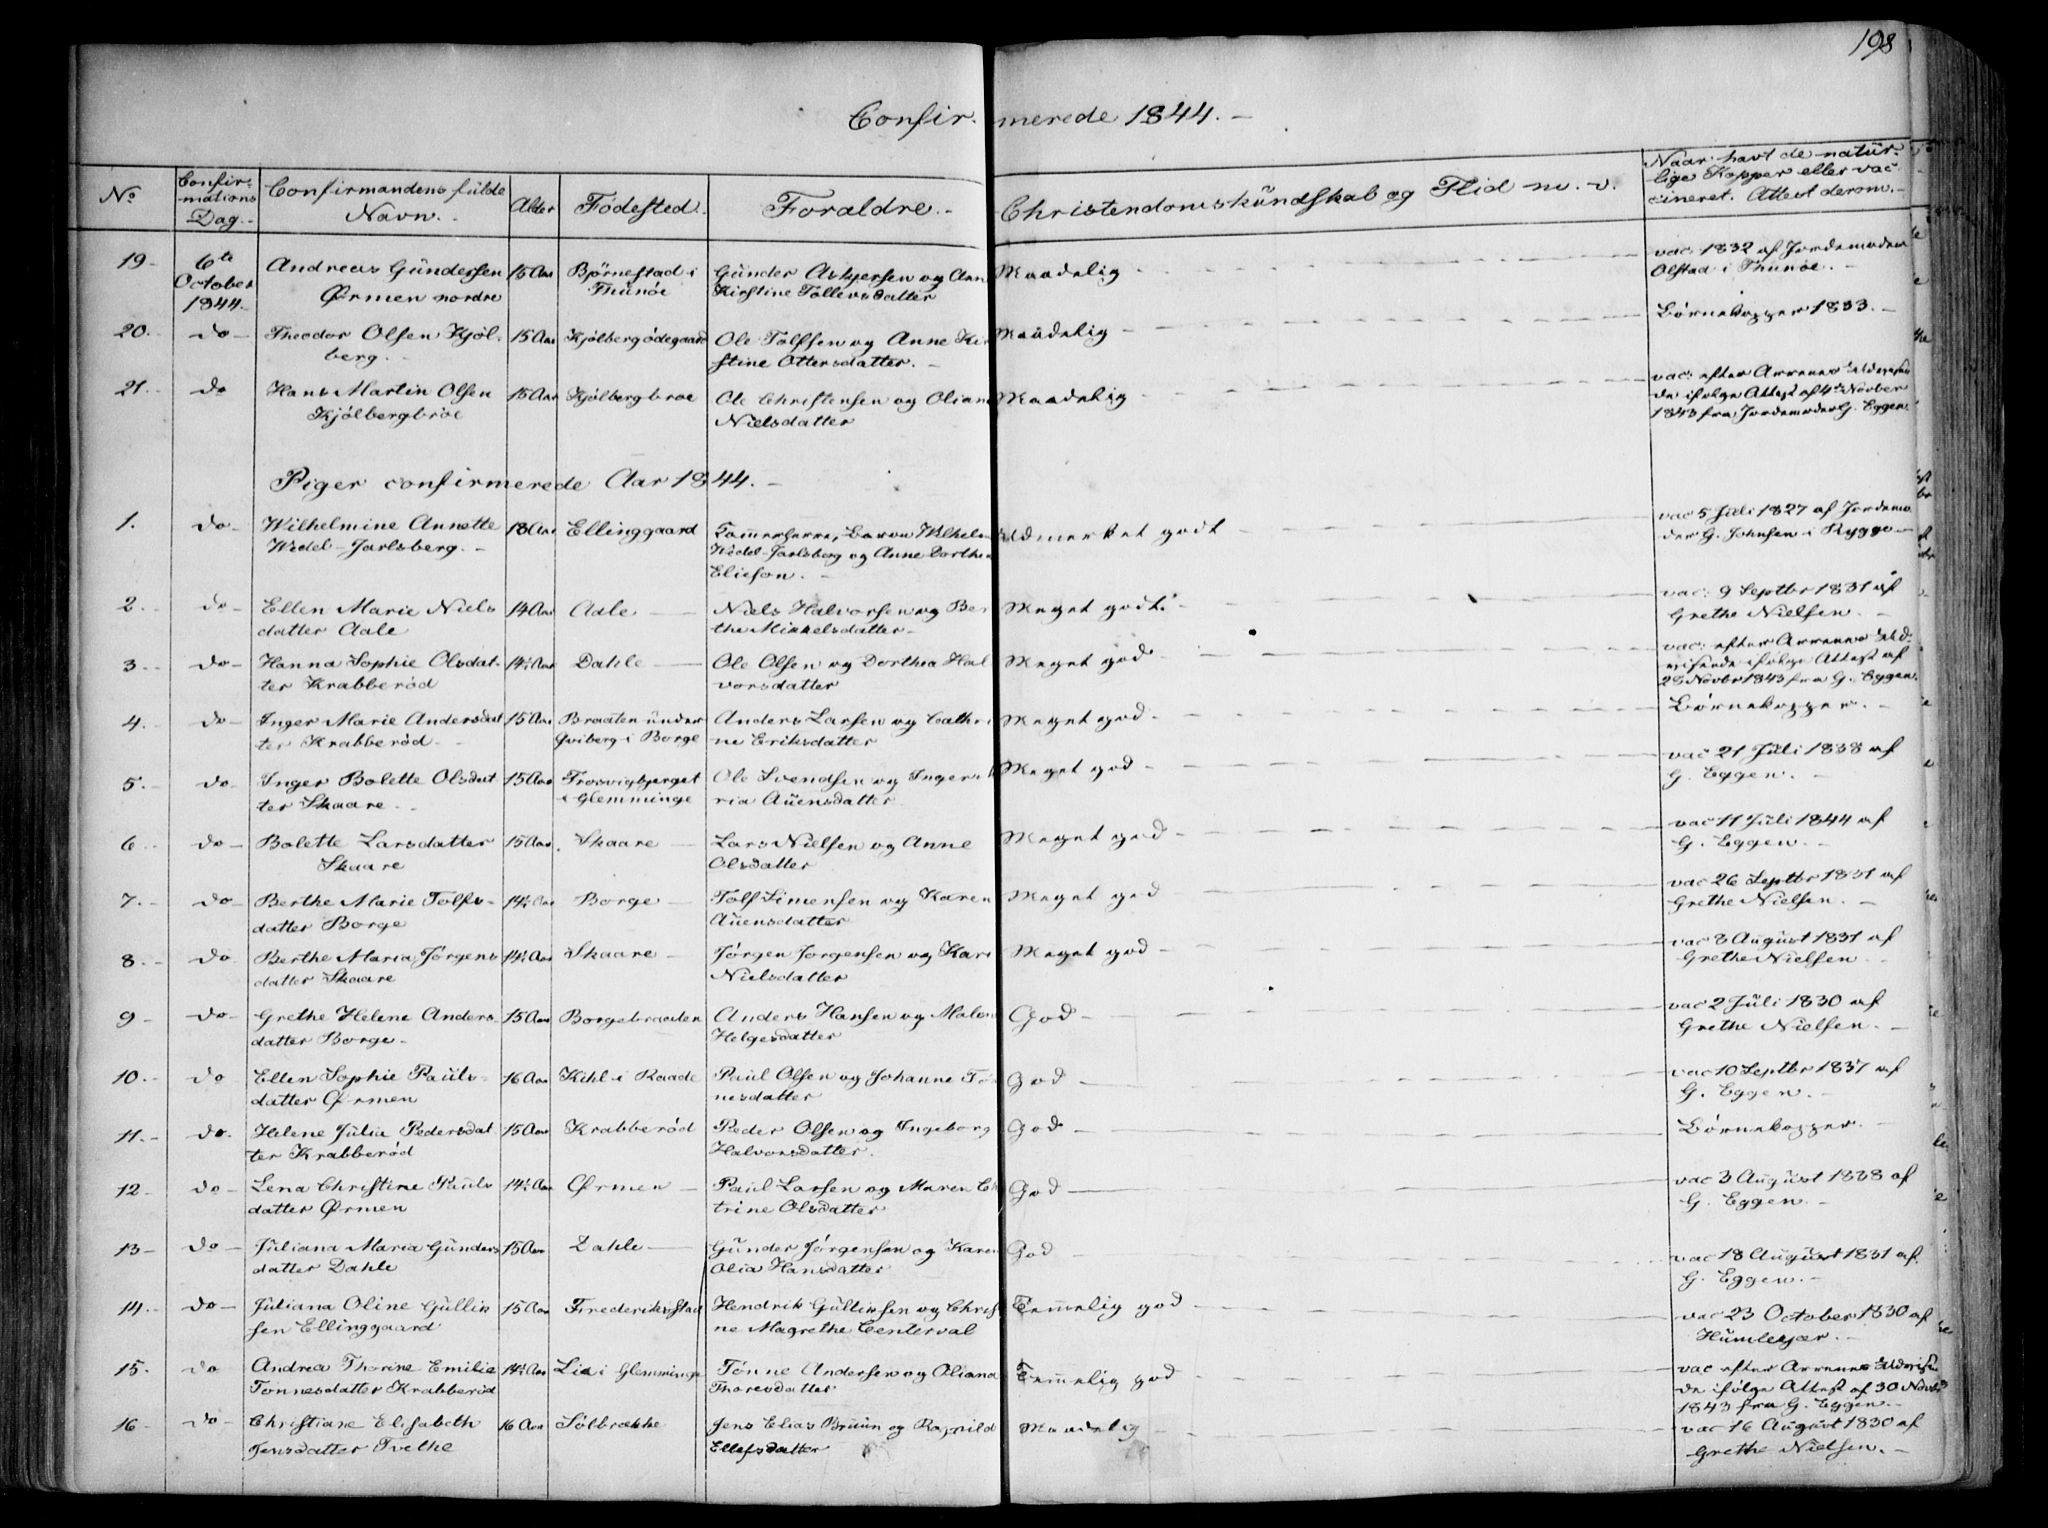 198
Confirmerede 1844. –
No
Confirmations Dag. –
Confirmandens fulde Navn. –
Alder
Fødested.
Foraldre. –
Christendomskündskab og Flid m. v.
Naar havt de natürlige Kopper eller vaccineret. Attest derom. –
19 – 6te October 1844. Andreas Gündersen Ørmen nordre 15 Aar Bjørnestad i Thünöe Günder Askjersen og Ann Kirstine Tollevsdatter Maadelig – vac: 1832 af Jordemoder Olstad i Thunöe. –
20. do – Theodor Olsen Kjölberg. – 15 Aar Kjölbergödegaard Ole Tolfsen og Anne Kirstine Ottersdatter. – Maadelig – Börnekopper 1833. –
21. do Hans Martin Olsen Kjölbergbröe 15 Aar Kjölbergbroe Ole Christensen og Oliane Nielsdatter Maadelig – vac: efter Arrenes Udvisende ifølge Attest af 4de Novber 1843 fra Jordemoder G. Eggen.
Piger confirmerede Aar 1844. –
1. do – Wilhelmine Annette Wedel-Jarlsberg. – 18 Aar Ellinggaard Kammerherre, Baron Wilhelm Wedel-Jarlsberg og Anne Dorthea Elieson. – Udmerket godt – vac 5 Jüli 1827 af Jordemoder G. Johnsen i Rygge –
2. do – Ellen Marie Nielsdatter Aale 14 Aar Aale – Niels Halvorsen og Berthe Mikkelsdatter – Meget godt. – vac: 9 Septbr 1831 af Grethe Nielsen. –
3. do – Hanna Sophie Olsdatter Krabberöd 14½ Aar Dahle – Ole Olsen og Dorthea Halvorsdatter Meget god – vac: efter Arrenes Udvisende ifølge Attest af 28 Novbr 1843 fra G. Eggen.
4. do – Inger Marie Andersdatter Krabberöd – 15 Aar Braaten under Gviberg i Borge Anders Larsen og Cathrine Eriksdatter Meget god – Börnekopper. –
5. – do – Inger Bolette Olsdatter Skaare. – 15 Aar Trosvigbjerget i Glemminge Ole Svendsen og Inger Maria Auensdatter Meget god – vac 21 Jüli 1838 af G. Eggen. –
6. do – Bolette Larsdatter Skaare 15 Aar. Skaare – Lars Nielsen og Anne Olsdatter Meget god – vac 11 Jüli 1844 af G. Eggen. –
7. – do – Berthe Marie Tolfsdatter Borge 14½ Aar Borge – Tolf Simensen og Karen Auensdatter Meget god – vac 26 Septbr 1831 af Grethe Nielsen. –
8. – do Berthe Maria Jörgensdatter Skaare 14½ Aar Skaare – Jörgen Jorgensen og Kari Nielsdatter Meget god – vac 8 August 1831 af Grethe Nielsen
9 – do – Grethe Helene Andersdatter Borge – 15 Aar Borgebraaten Anders Hansen og Malene Helgesdatter God – vac 2 Jüli 1830 af Grethe Nielsen. –
10. – do Ellen Sophie Paulsdatter Ørmen 16 Aar Kihl i Raade Paul Olsen og Johanne Tönnesdatter God – vac 10 Septbr 1837 af G. Eggen. –
11. – do. Helene Julia Pedersdatter Krabberöd 15 Aar Krabberöd Peder Olsen og Ingeborg Halvorsdatter. God – Börnekopper. –
12 – do – Lena Christine Paulsdatter Ørmen 14½ Aar Ørmen – Paul Larsen og Maren Catrine Olsdatter God – vac 3 August 1838 af G. Eggen. –
13 – do – Juliana Maria Gundersdatter Dahle 15 Aar Dahle – Günder Jörgensen og Karen Olia Hansdatter God – vac 18 August 1831 af G. Eggen. –
14. – do – Juliana Oline Gulliksen Ellinggaard 15 Aar Frederikstad Hendrik Gulliksen og Christine Magrethe Centerval Temmelig god – vac 23 October 1830 af Humlekjær. –
15. do Andrea Thorine Emilie Tonnesdatter Krabberöd 14½ Aar Lia i Glemminge Tönne Andersen og Oliana Thoresdatter Temmelig god – vac efter Arrenes Udvisende ifølge Attest af 30 Novbr 1843 fra G. Eggen –
16 – do – Christiane Elisabeth Jensdatter Tvethe 16 Aar Sölbrække Jens Elias Bruun og Ragnild Ellefsdatter Maadelig – vac 16 August 1830 af Grethe Nielsen. –